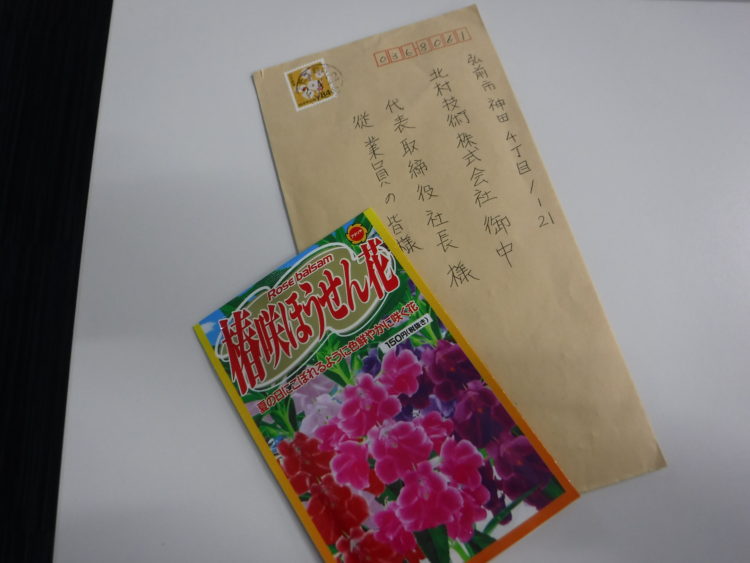 0368061
弘前市神田4丁目1-21
北村技術株式会社御中
代表取締役社長様
従業員の皆様
Rose balsam
椿咲ほうせん花
夏の日にこぼれるように色鮮やかに咲く花
150円(税抜き)